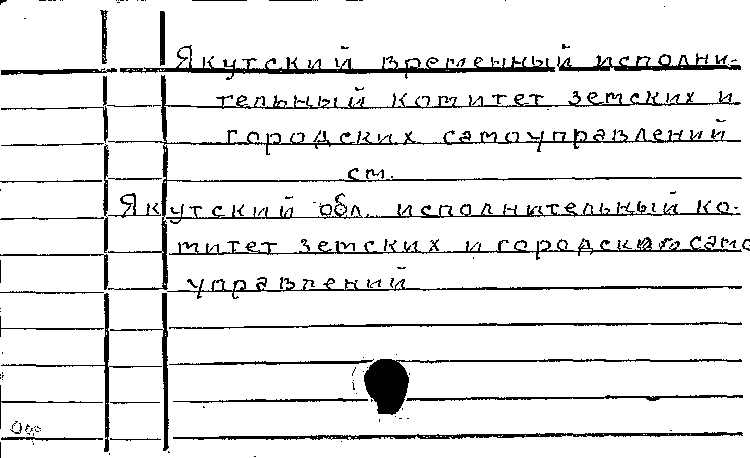 Якутский временный исполни-
тельный комитет земских и
городских самоуправлений
см.
Якутский обл. исполнительный ко-
митет земских и городских само
управлений